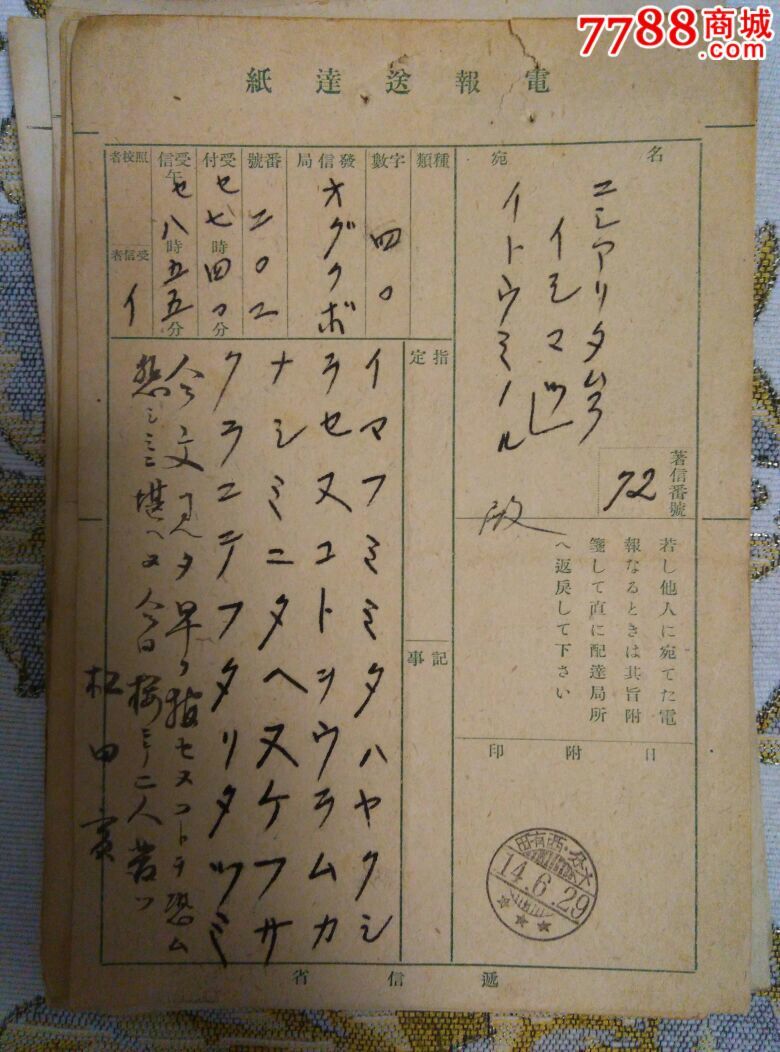 7788商城
.com
電報送達紙
名宛
ニシアリタムラ
イシマツ
イトウミノル
著信番號
72
若し他人に宛てた電
報なるときは其旨附
箋して直に配達局所
へ返戻して下さい
日附印
西有田
14.6.29
種類
字數
四〇
發信局
オグクボ
番號
二〇二
受付
セ七時四〇分
受信
午セ八時五五分
照校者
受信者
イ
指定
記事
イマフミミタハヤクシ
ラセヌコトヲウラムカ
ナシミニタヘヌケフサ
クラニテフタリタツミ
今文見タ早ク報セヌコトヲ恐ム
悲シミニ堪ヘヌ今日桜ニテ二人
松田
遞信省